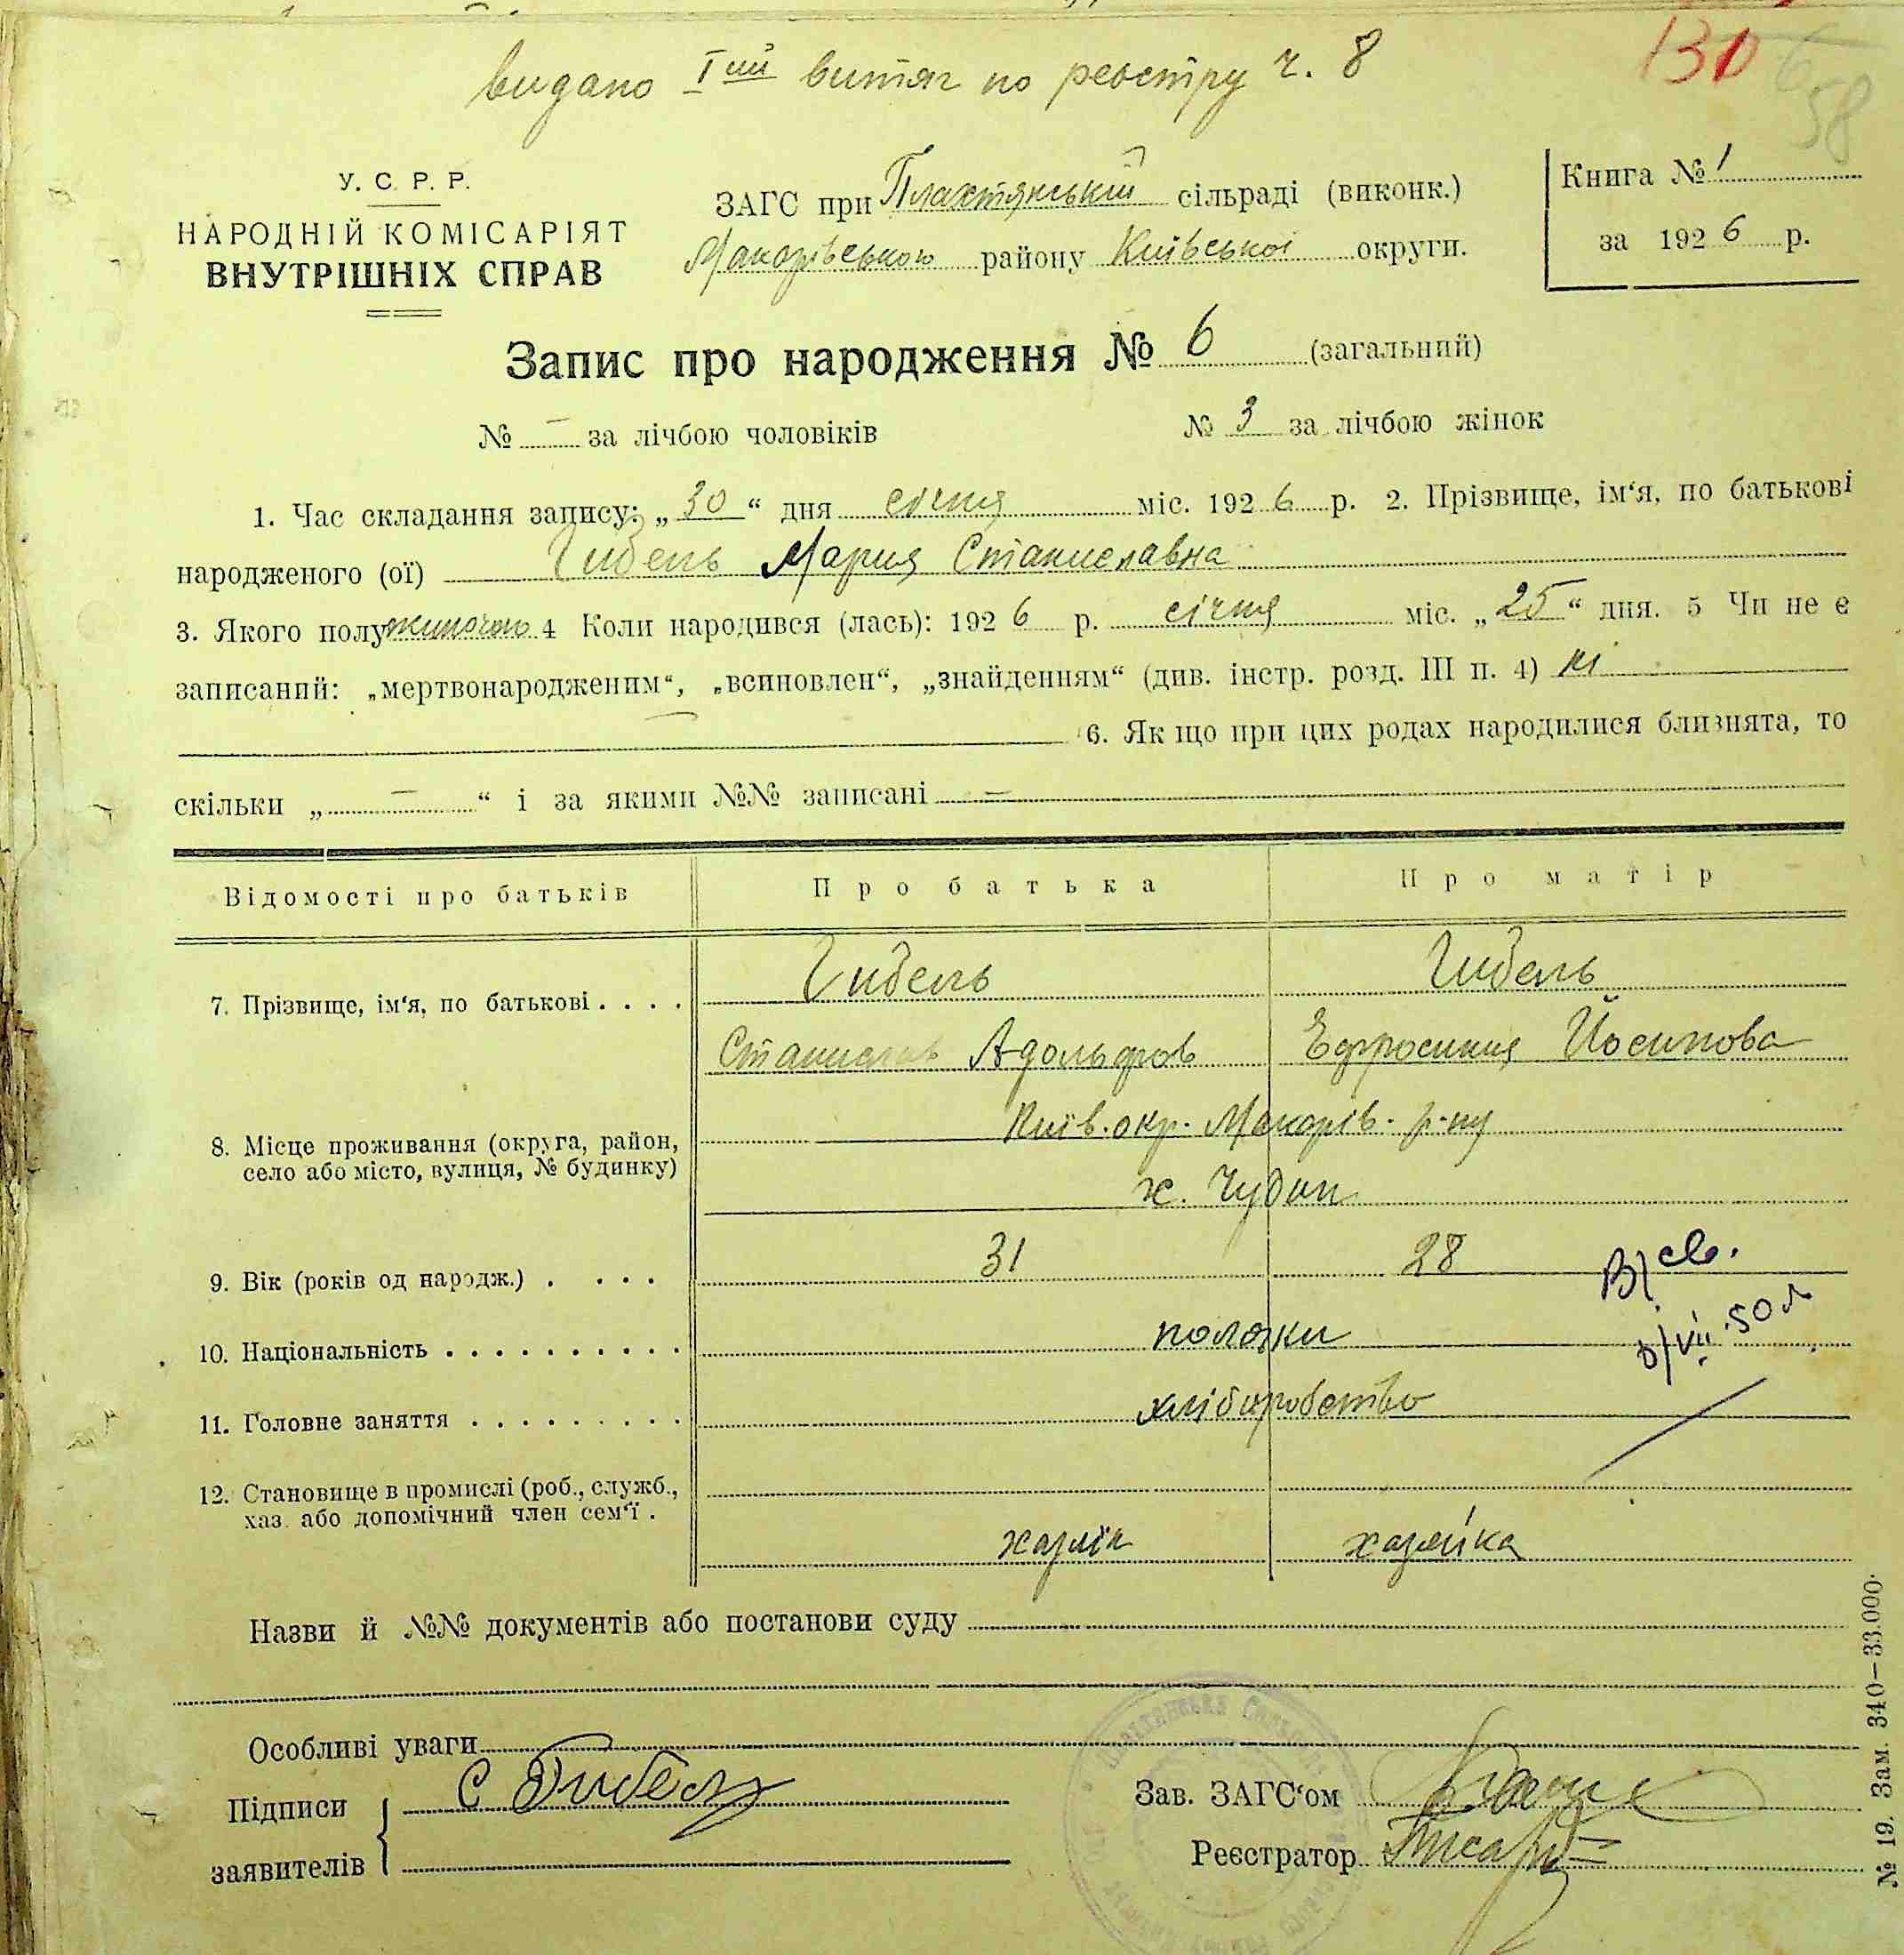 видано Iий витяг по реєстру ч. 8
130 6
58
У. С. Р. Р.
НАРОДНІЙ КОМІСАРІЯТ
ВНУТРІШНІХ СПРАВ
ЗАГС при Плахтянській сільраді (виконк.)
Макарівського району Київської округи.
Книга № 1
за 1926 р.
Запис про народження № 6 (загальний)
№ – за лічбою чоловіків № 3 за лічбою жінок
1. Час складання запису: „30“ дня січня міс. 1926 р. 2. Прізвище, ім‘я, по батькові
народженого (ої) Гибель Мария Станиславна
3. Якого полу жиночого 4 Коли народився (лась): 1926 р. січня міс. „25“ дня. 5 Чи не є
записаний: „мертвонародженим“, „всиновлен“, „знайденням“ (див. інстр. розд. III п. 4) ні
6. Як що при цих родах народилися близнята, то
скільки „ – “ і за якими №№ записані –
Відомості про батьків Про батька Про матір
7. Прізвище, ім‘я, по батькові . . . . Гибель Гибель
Станислав Адольфов Ефросиния Йосипова
8. Місце проживання (округа, район,
село або місто, вулиця, № будинку)
Київ. окр. Макарів. р-ну
х. Чудин
9. Вік (років од народж.) . . . . 31 28
В/св.
/VII 50
10. Національність . . . . . . . . . . поляки
11. Головне заняття . . . . . . . . . хліборобство
12. Становище в промислі (роб., служб.,
хаз. або допомічний член сем‘ї .
хазяїн хазяйка
Назви й №№ документів або постанови суду
Особливі уваги
Підписи
заявителів
С Гибель
Зав. ЗАГС‘ом
Реєстратор
№ 19. Зам. 340–33.000.